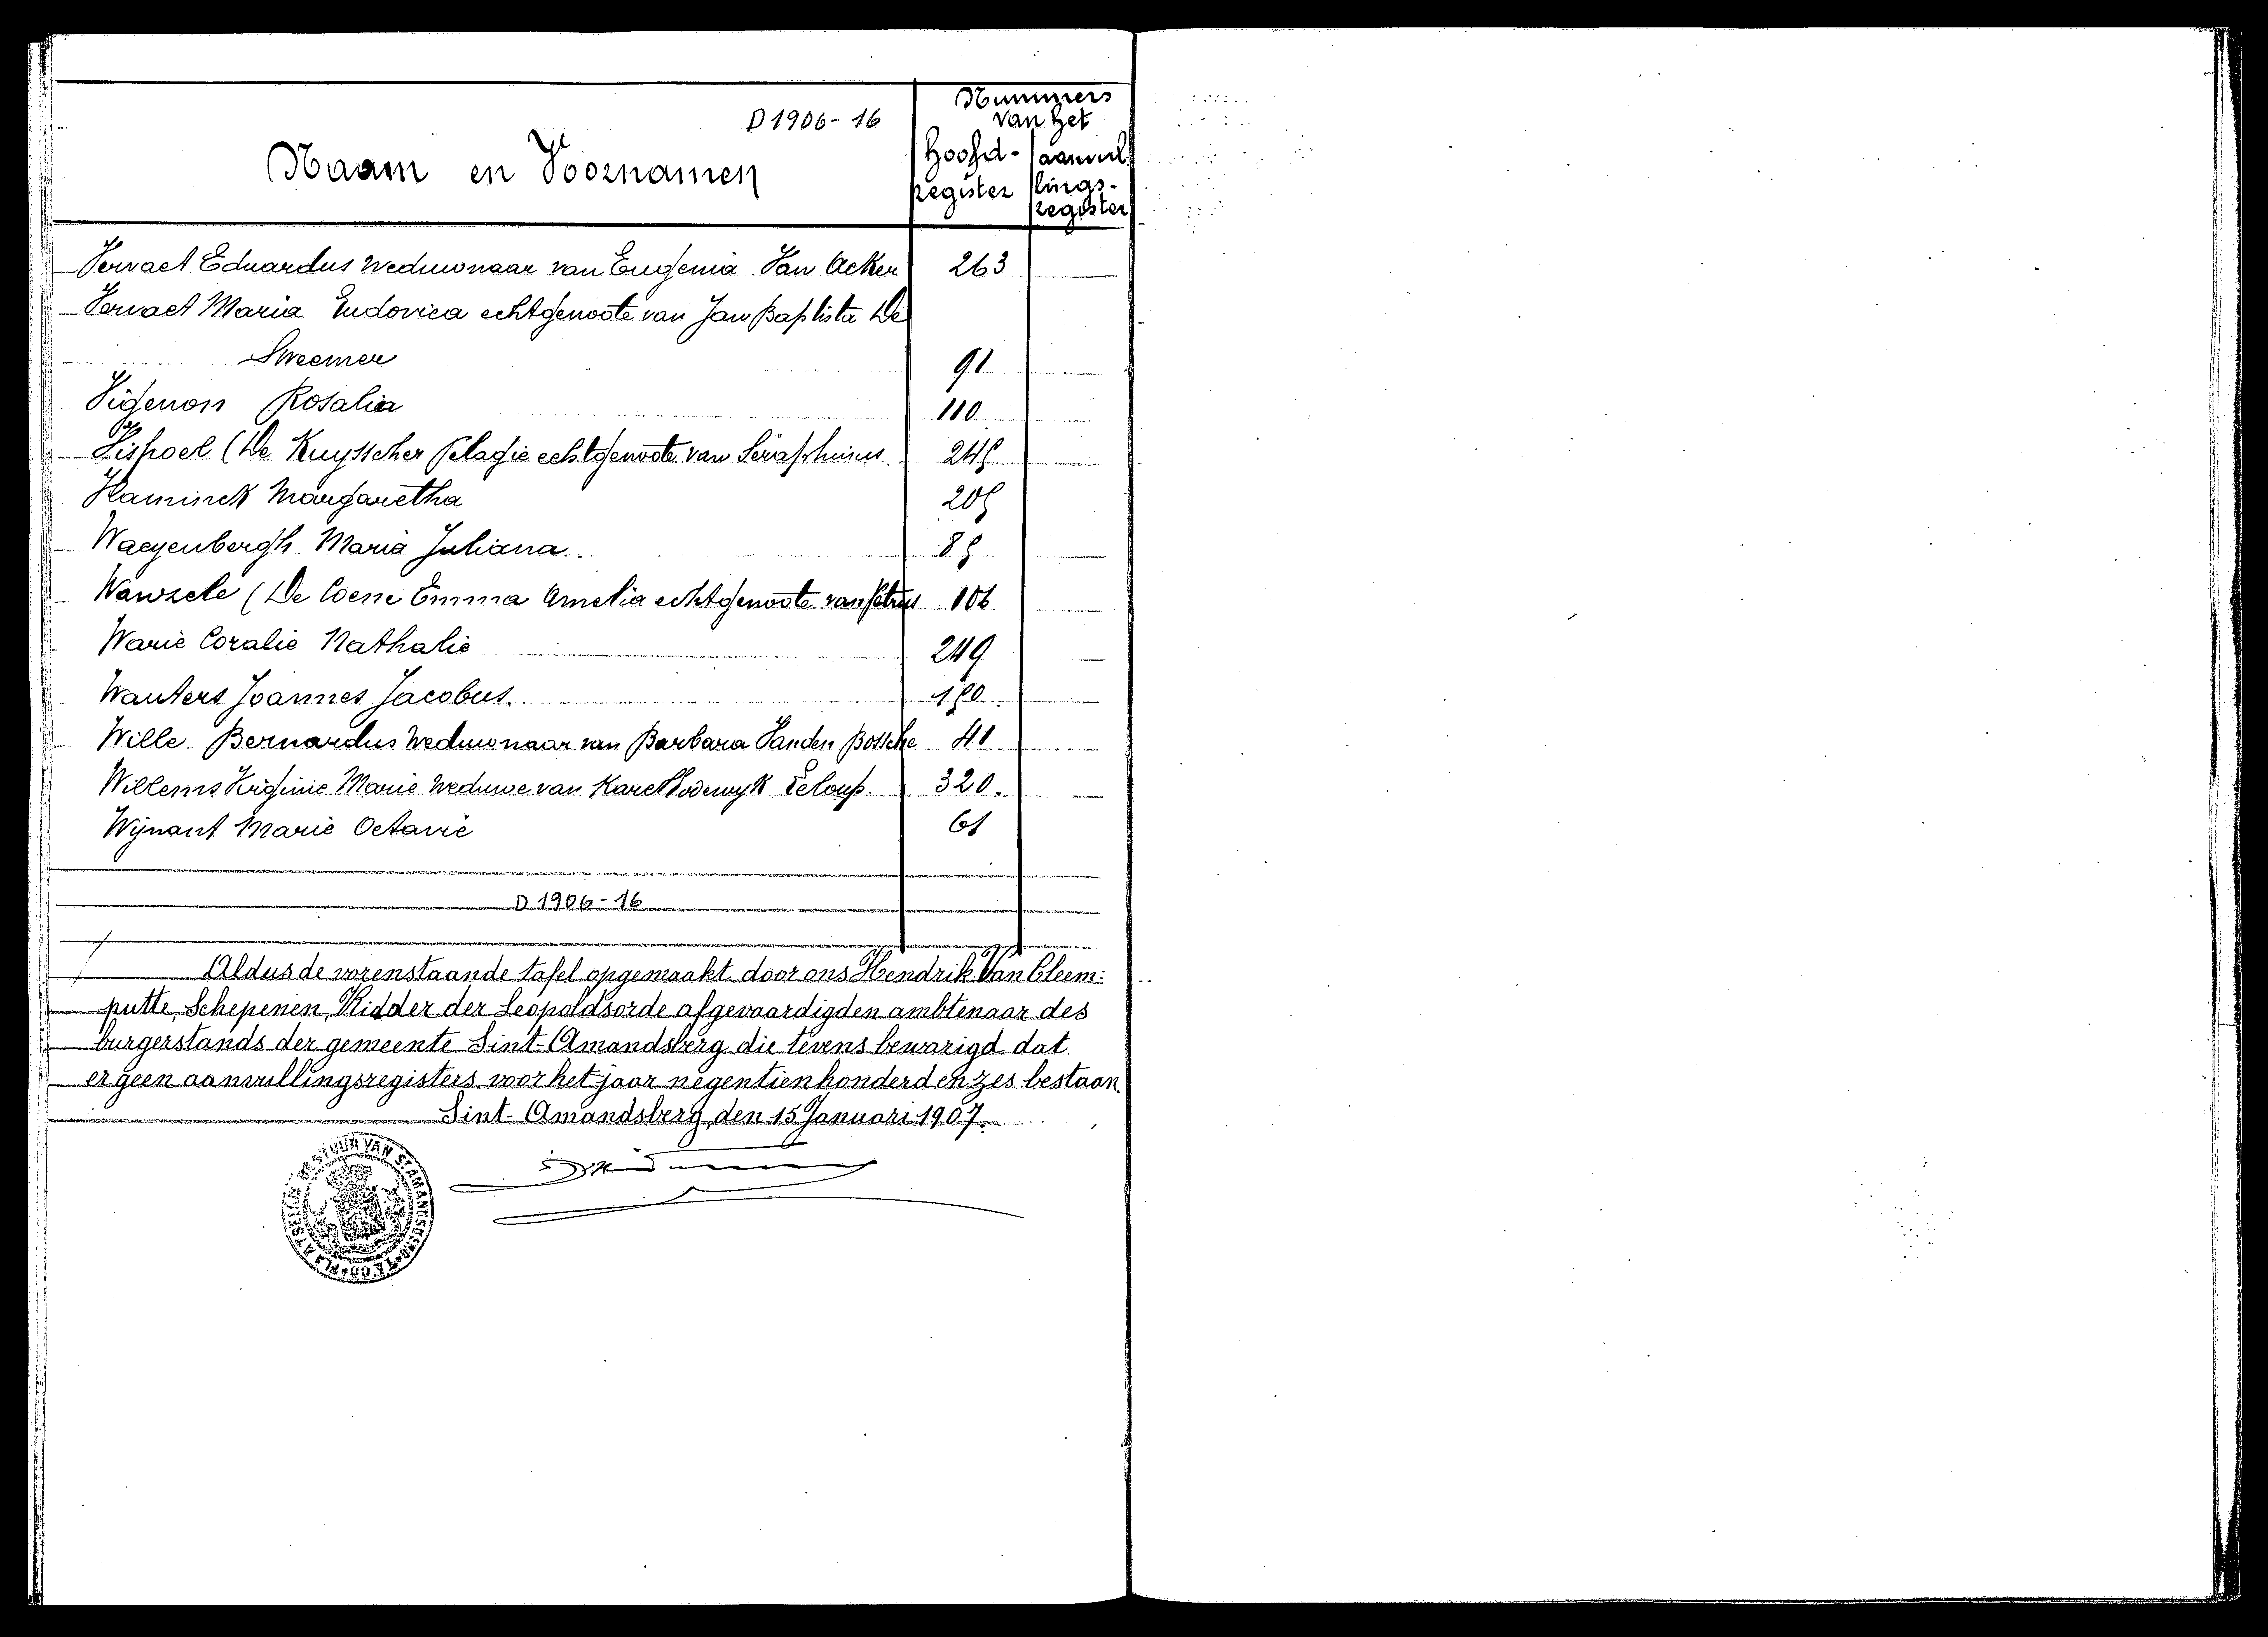 D 1906-16
Nummers
van het
Naam en Voornamen
Hoofd-
register
aanvul
lings-
register
Vervaet Eduardus Weduwnaar van Eugenia Van Acker 263
Vervaet Maria Ludovica echtgenoote van Jan Baptista De
Sweemer 91
Vigenon Rosalia 110
Vispoel (De Ruysscher Pelagie echtgenoote van Séraphinus
Vlaminck Margaretha
Waeyenbergh Maria Juliana
Wanzele (De Coene Emma Amelia echtgenoote van Petrus 106
Warie Coralie Nathalie 249
Wauters Joannes Jacobus.
Wille Bernardus Weduwnaar van Barbara Vanden Bossche 41
Willems Virginie Marie Weduwe van Karel Lodewyk Leloup 320.
Wijnant Marie Octavie 61
D 1906-16
Aldus de vorenstaande tafel opgemaakt door ons Hendrik Van Cleem:
putte, Schepenen, Ridder der Leopoldsorde afgevaardigden ambtenaar des
burgerstands der gemeente Sint-Amandsberg die tevens bewarigd dat
er geen aanvullingsregisters voor het jaar negentienhonderd en zes bestaan
Sint-Amandsberg, den 15 Januari 1907.